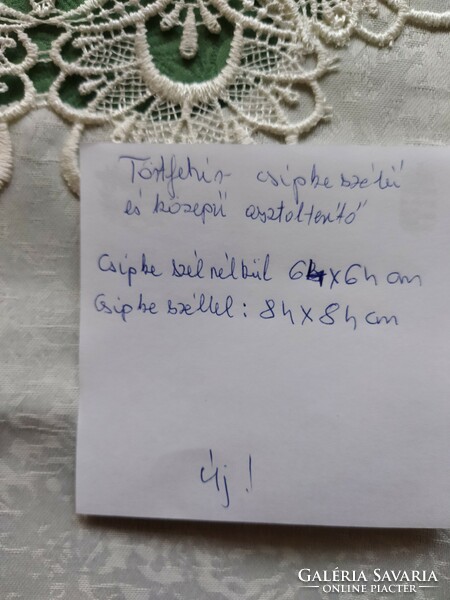 Törtfehér csipke szélű
és közepű asztalterítő
Csipke szél nélkül 64x64 cm
Csipke széllel: 84x84 cm
Új!
GALÉRIA SAVARIA
ONLINE PIACTÉR